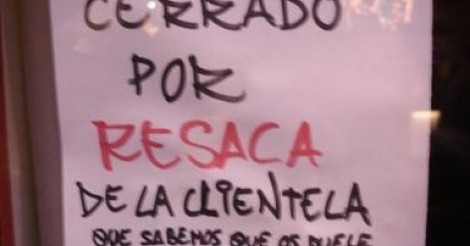 CERRADO
POR
RESACA
DE LA CLIENTELA
QUE SABEMOS QUE OS DUELE